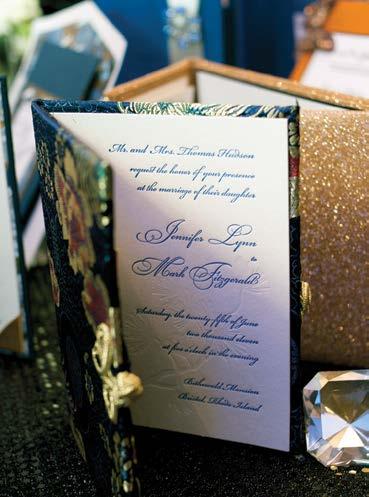 Mr. and Mrs. Thomas Hudson
request the honor of your presence
at the marriage of their daughter
Jennifer Lynn
to
Mark Fitzgerald
Saturday, the twenty fifth of June
two thousand eleven
at five o'clock in the evening
Mansion
Bristol, Rhode Island